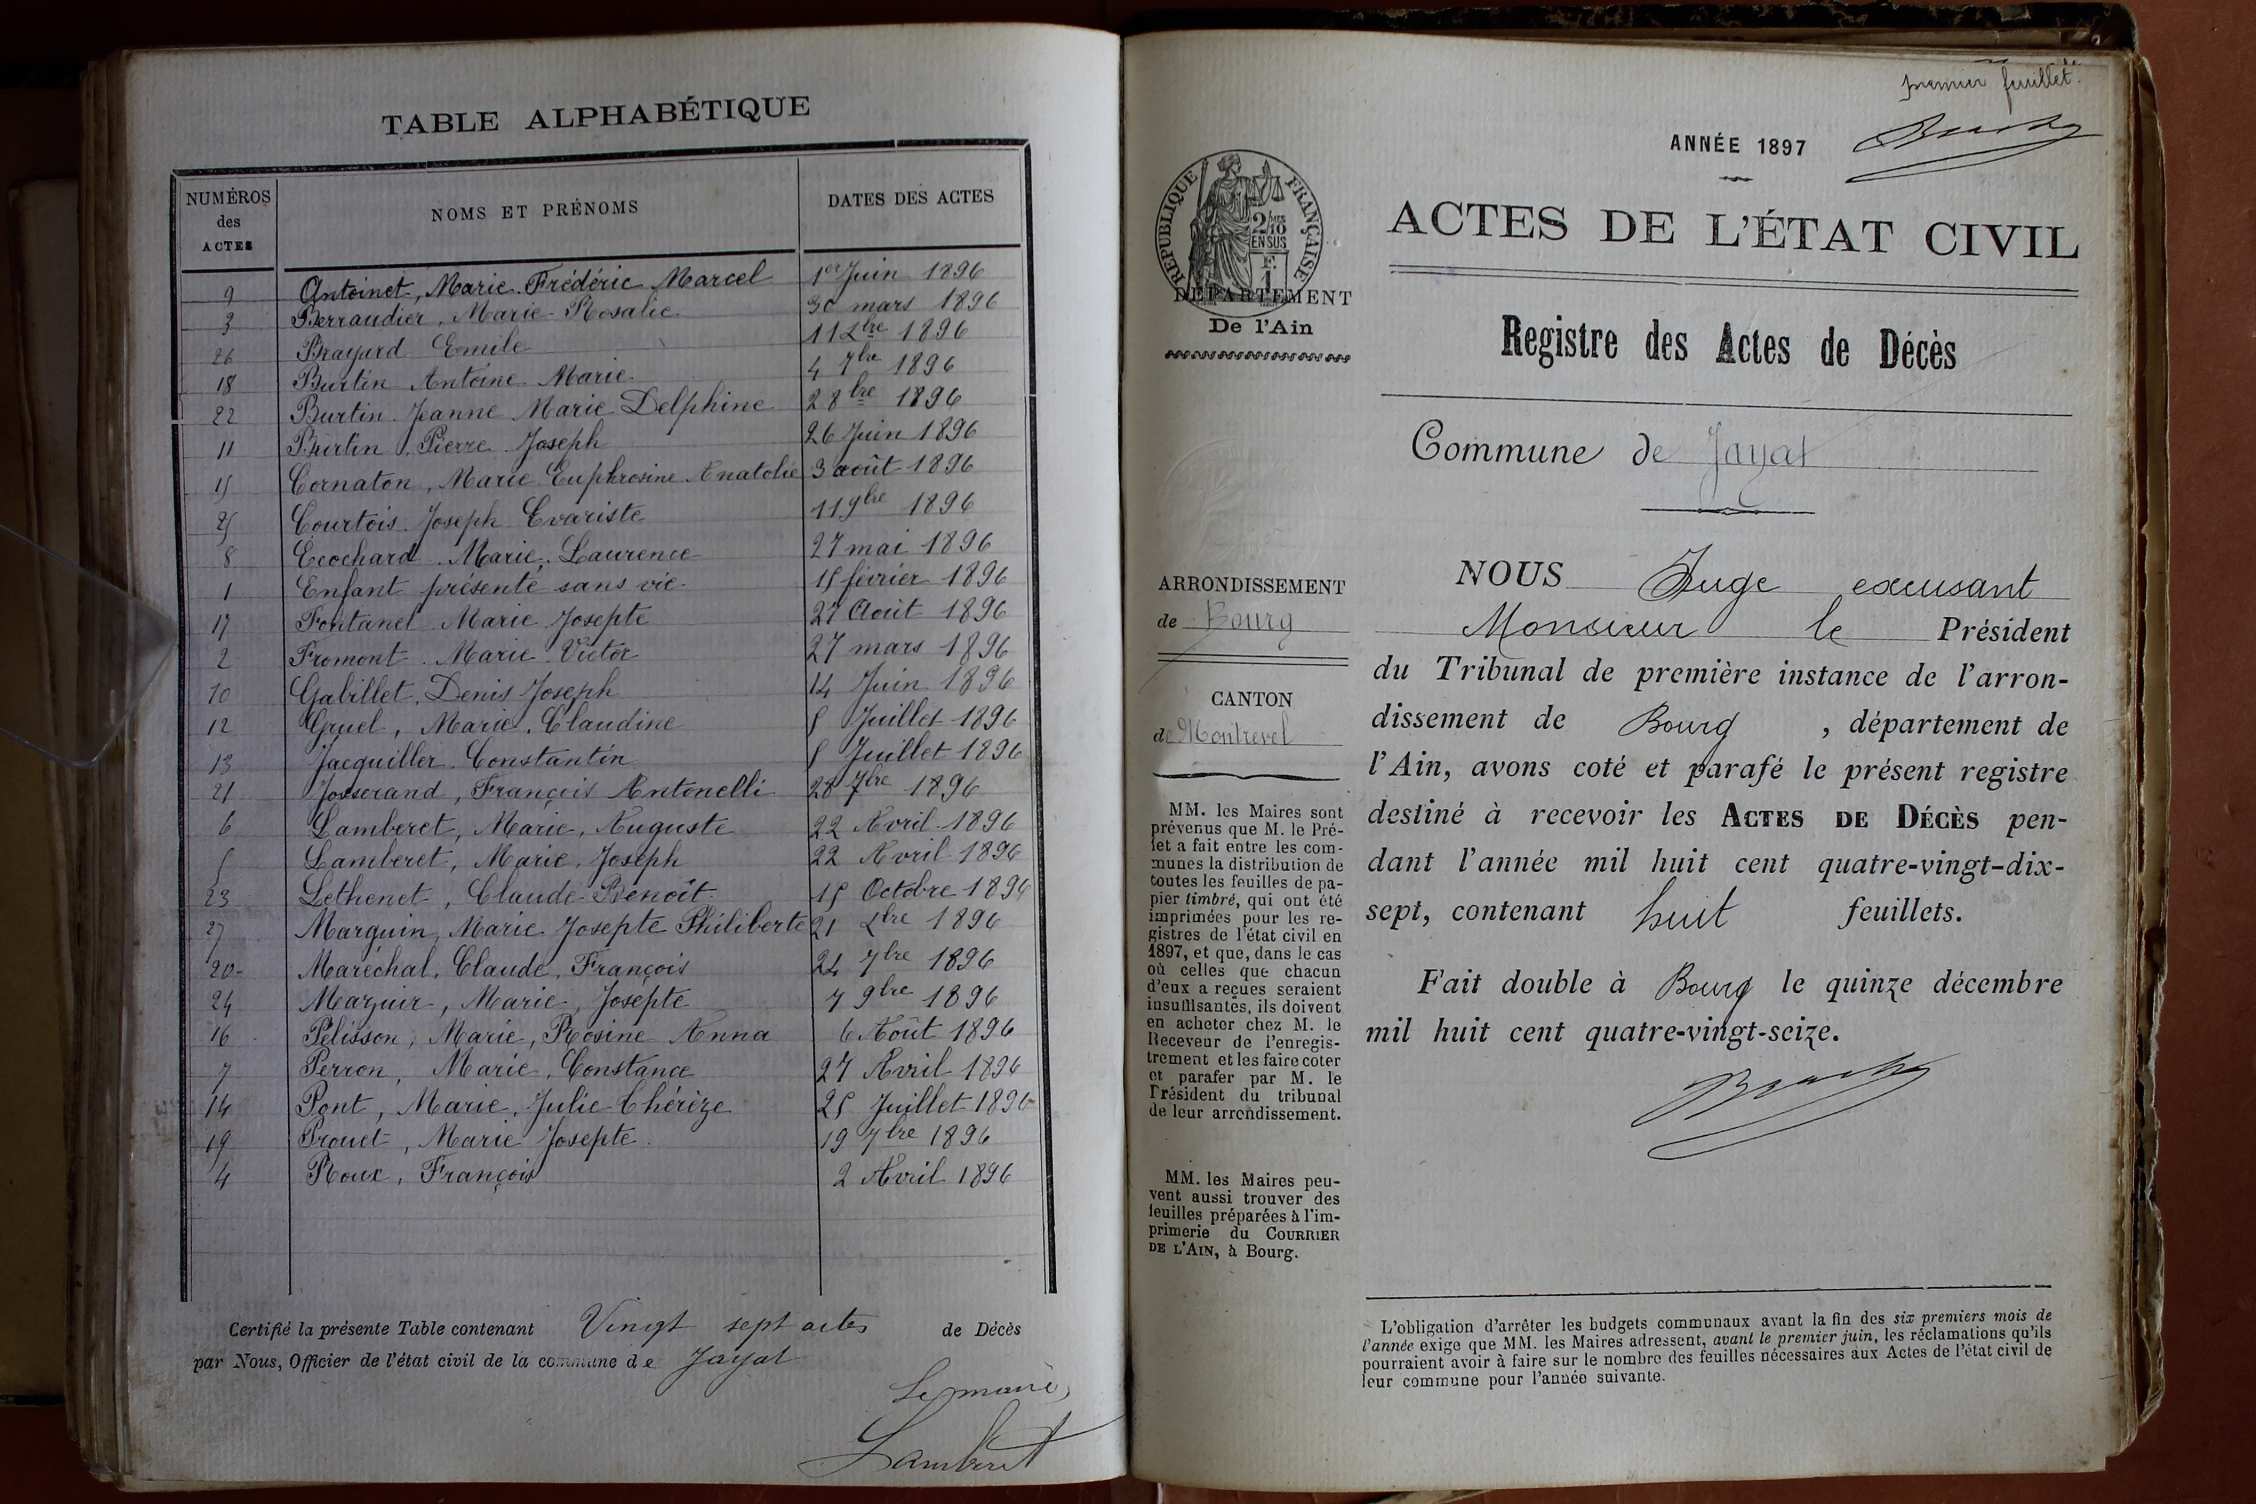 TABLE ALPHABÉTIQUE
NUMÉROS des ACTES NOMS ET PRÉNOMS DATES DES ACTES
9 Antoinet, Marie Frédéric Marcel 1er Juin 1896
3 Berraudier, Marie-Rosalie 30 mars 1896
26 Brayard Emile 11 Xbre 1896
18 Burtin Antoine Marie 4 7bre 1896
22 Burtin Jeanne Marie Delphine 2 8bre 1896
11 Burtin, Pierre Joseph 26 Juin 1896
15 Cornaton, Marie Euphrosine Anatolie 3 août 1896
25 Courtois Joseph Evariste 11 9bre 1896
8 Ecochard Marie, Laurence 27 mai 1896
1 Enfant présenté sans vie 15 février 1896
17 Fontanel Marie Josepte 27 Août 1896
2 Fromont Marie Victor 27 mars 1896
10 Gabillet, Denis Joseph 14 Juin 1896
12 Gruel, Marie, Claudine 5 Juillet 1896
13 Jacquiller Constantin 5 Juillet 1896
21 Josserand, François Antonelli 28 7bre 1896
6 Lamberet, Marie, Auguste 22 Avril 1896
5 Lamberet, Marie, Joseph 22 Avril 1896
23 Lethenet, Claude-Benoît 15 Octobre 1896
27 Marguin, Marie Josepte Philiberte 21 Xbre 1896
20 Maréchal, Claude, François 24 7bre 1896
24 Mazuir, Marie, Josepte 7 9bre 1896
16 Pélisson, Marie, Rosine Anna 6 Août 1896
7 Perron, Marie, Constance 27 Avril 1896
14 Pont, Marie, Julie Thérèze 25 Juillet 1896
19 Prouet, Marie Josepte 19 7bre 1896
4 Roux, François 2 Avril 1896
Certifié la présente Table contenant Vingt sept actes de Décès
par Nous, Officier de l'état civil de la commune de Jayat
Le maire,
Lamberet
premier feuillet.
ANNÉE 1897
RÉPUBLIQUE FRANÇAISE
2/10
EN SUS
F.
1
DÉPARTEMENT
De l'Ain
ACTES DE L'ÉTAT CIVIL
Registre des Actes de Décès
Commune de Jayat
ARRONDISSEMENT
de Bourg
CANTON
de Montrevel
MM. les Maires sont
prévenus que M. le Pré-
fet a fait entre les com-
munes la distribution de
toutes les feuilles de pa-
pier timbré, qui ont été
imprimées pour les re-
gistres de l'état civil en
1897, et que, dans le cas
où celles que chacun
d'eux a reçues seraient
insuffisantes, ils doivent
en acheter chez M. le
Receveur de l'enregis-
trement et les faire coter
et parafer par M. le
Président du tribunal
de leur arrondissement.
MM. les Maires peu-
vent aussi trouver des
feuilles préparées à l'im-
primerie du COURRIER
DE L'AIN, à Bourg.
NOUS Juge excusant
Monsieur le Président
du Tribunal de première instance de l'arron-
dissement de Bourg, département de
l'Ain, avons coté et parafé le présent registre
destiné à recevoir les ACTES DE DÉCÈS pen-
dant l'année mil huit cent quatre-vingt-dix-
sept, contenant huit feuillets.
Fait double à Bourg le quinze décembre
mil huit cent quatre-vingt-seize.
L'obligation d'arrêter les budgets communaux avant la fin des six premiers mois de
l'année exige que MM. les Maires adressent, avant le premier juin, les réclamations qu'ils
pourraient avoir à faire sur le nombre des feuilles nécessaires aux Actes de l'état civil de
leur commune pour l'année suivante.